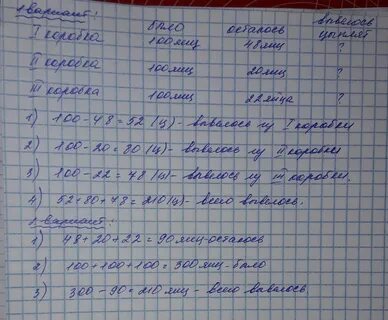 1 вариант:
было осталось вывелось цыплят
I коробка 100 яиц 48 яиц ?
II коробка 100 яиц 20 яиц ?
III коробка 100 яиц 22 яйца ?
1) 100-48=52 (ц)- вывелось из I коробки
2) 100-20=80 (ц)- вывелось из II коробки
3) 100-22=48 (ц)- вывелось из III коробки.
4) 52+80+48=210 (ц)- всего вывелось.
2 вариант:
1) 48+20+22=90 яиц-осталось
2) 100+100+100=300 яиц-было
3) 300-90=210 яиц- всего вывелось